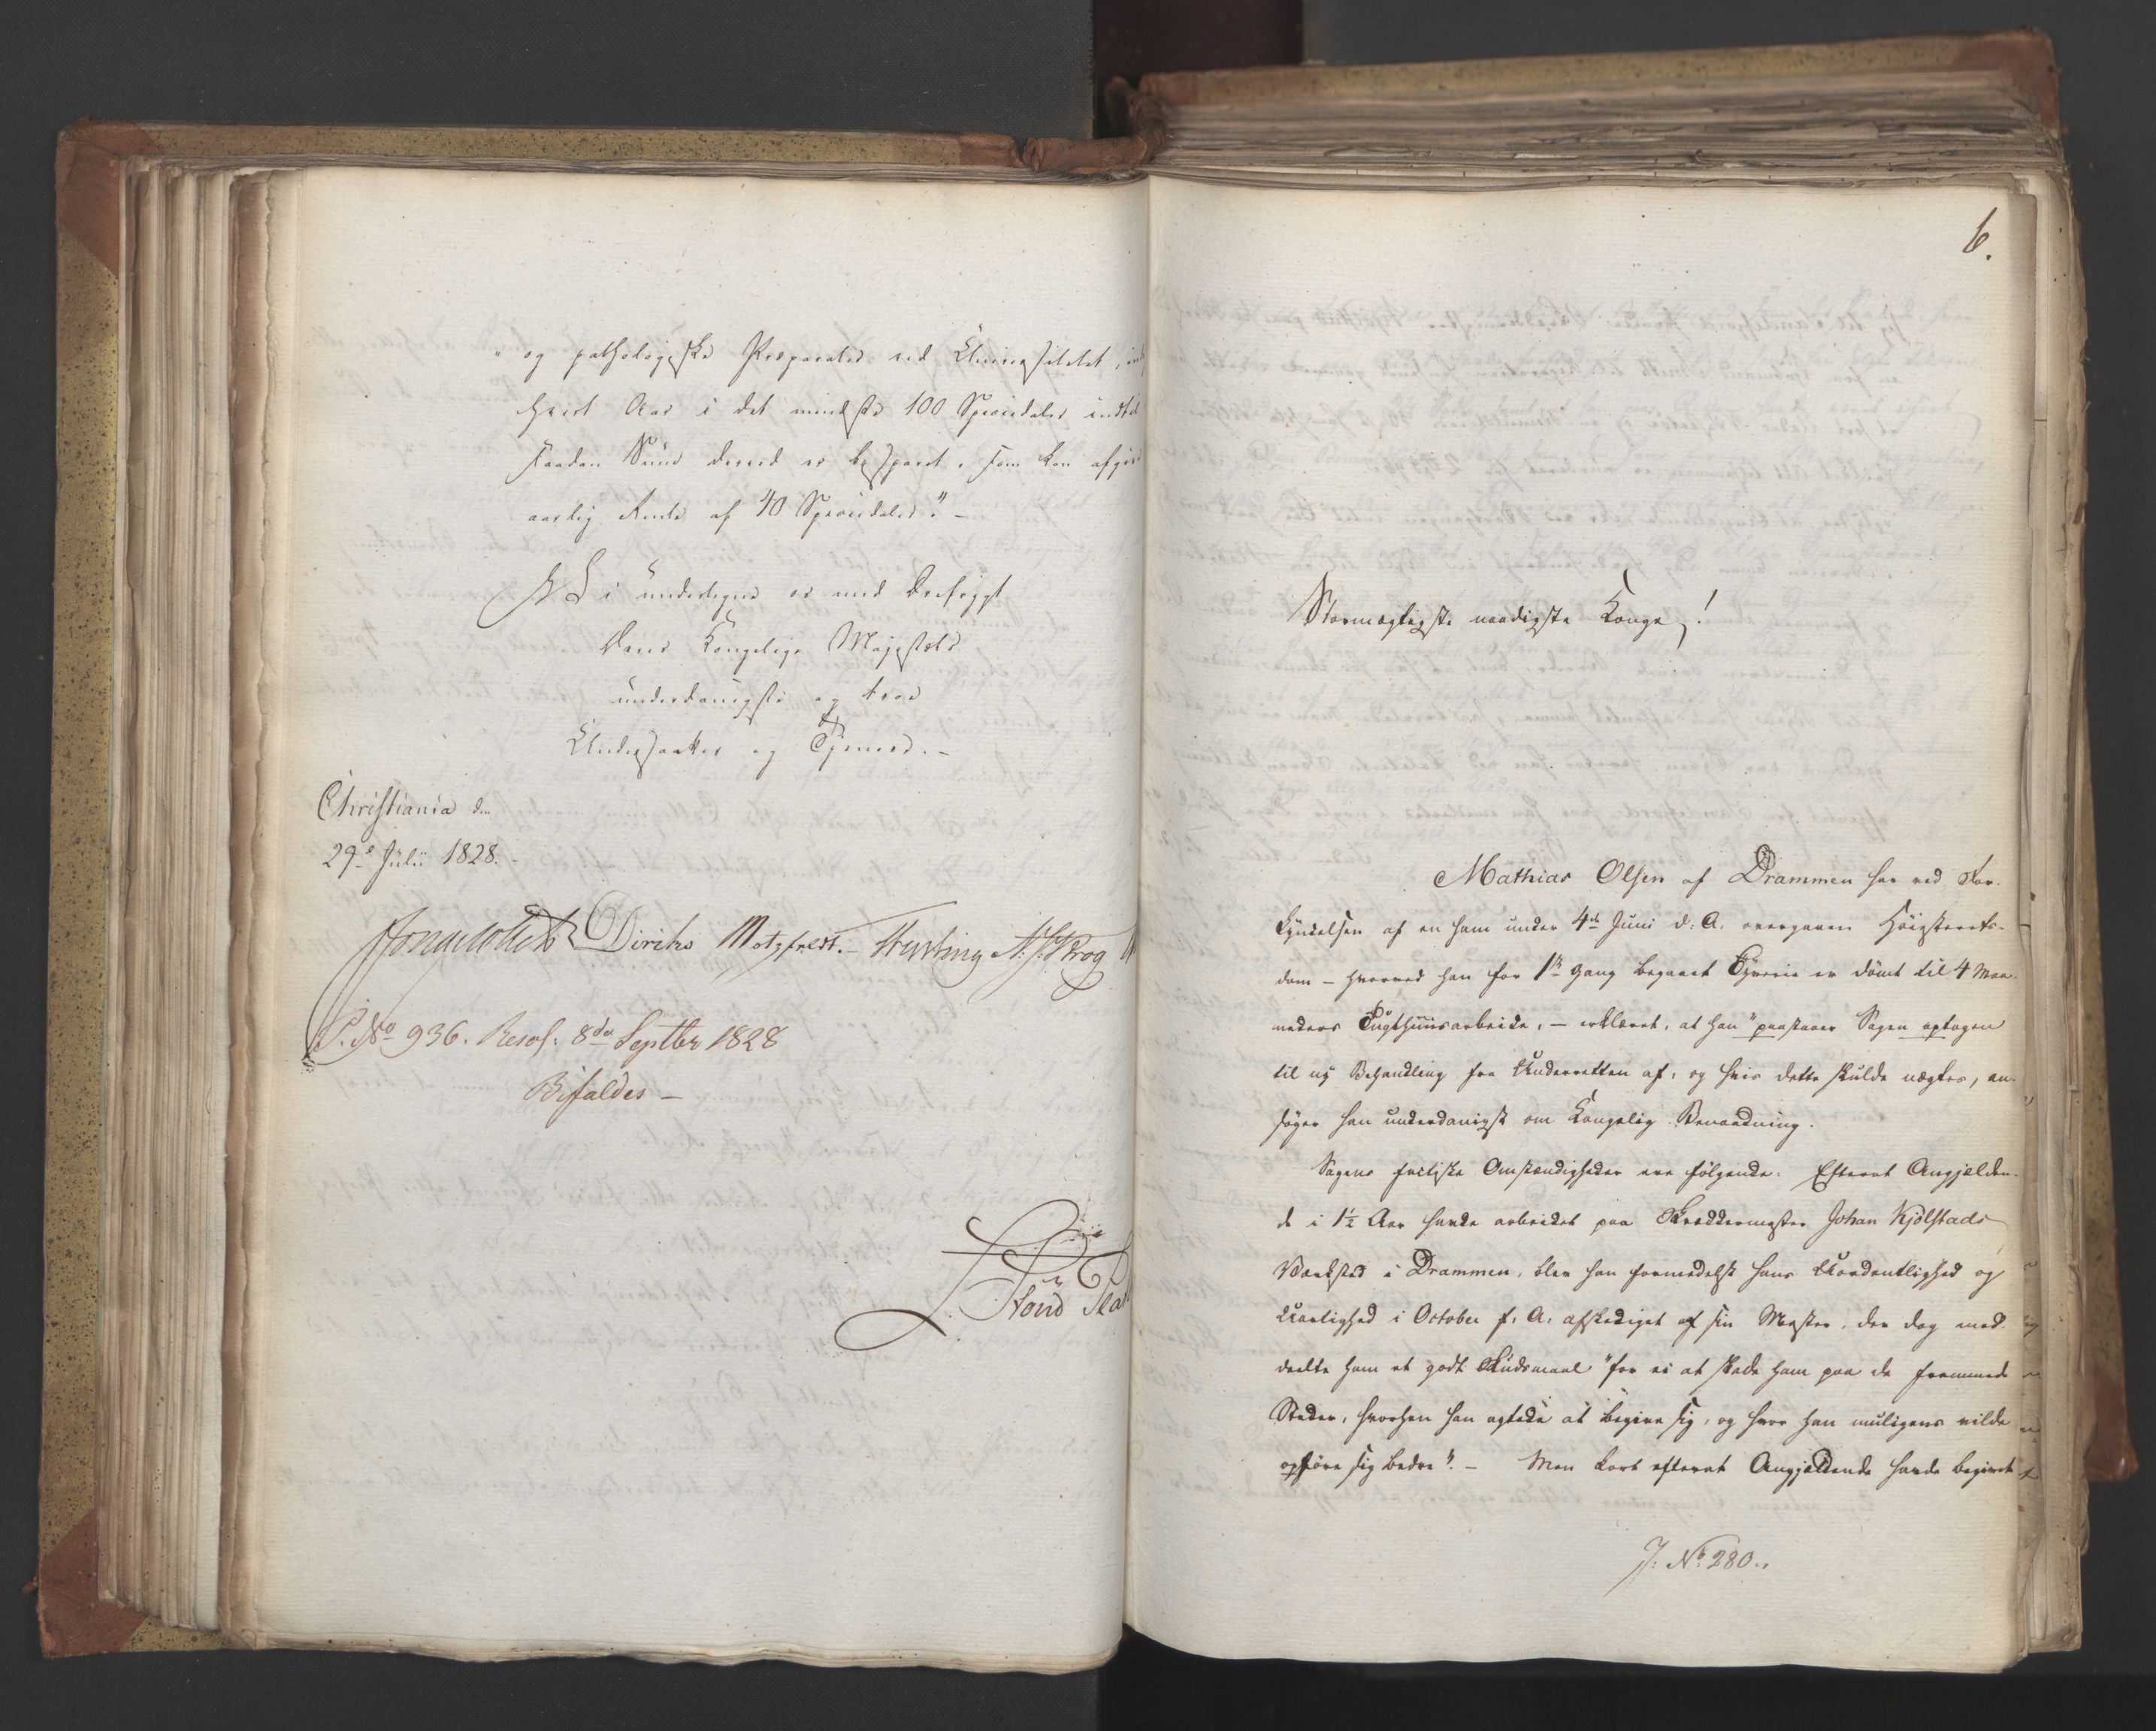 "og pathologiske Præparater ved Universitetet,
hvert Aar i det mindste 100 Speciedaler indtil
saadan Sum derved er besparet, som kan afgive
aarlig Rente af 40 Speciedaler." –
Vi undertegne os med Ærefrygt
Deres Kongelige Majestæts
underdanigste og troe
Undersaatter og Tjenere. –
Christiania den
29de Julii 1828. –
Diriks Motzfeldt. – N: J: Krog
S. No 936. Resol. 8de Septbr 1828
Bifaldes –
6.
Stormægtigste naadigste Konge!
Mathias Olsen af Drammen har ved For-
kyndelsen af en ham under 4de Juni d: A. overgaaen Høiesterets-
dom – hvorved han for 1ste Gang begaaet Tyverie er dømt til 4 Maa-
neders Tugthuusarbeide, – erklæret, at han "paastaaer Sagen optagen
til ny Behandling fra Underretten af, og hvis dette skulde nægtes, an-
søger han underdanigst om Kongelig Benaadning.
Sagens factiske Omstændigheder ere følgende: Efterat Angjelden-
de i 1½ Aar havde arbeidet paa Skreddermester Johan Kjølstads
Værksted i Drammen, blev han formedelst hans Uordentlighed og
Uærlighed i October f. A. afskediget af sin Mester, der dog med-
deelte ham et godt Skudsmaal "for ei at skade ham paa de fremmede
Steder, hvorhen han agtede at begive sig, og hvor han muligens vilde
opføre sig bedre". – Men kort efterat Angjeldende havde begivet
J: No 280.